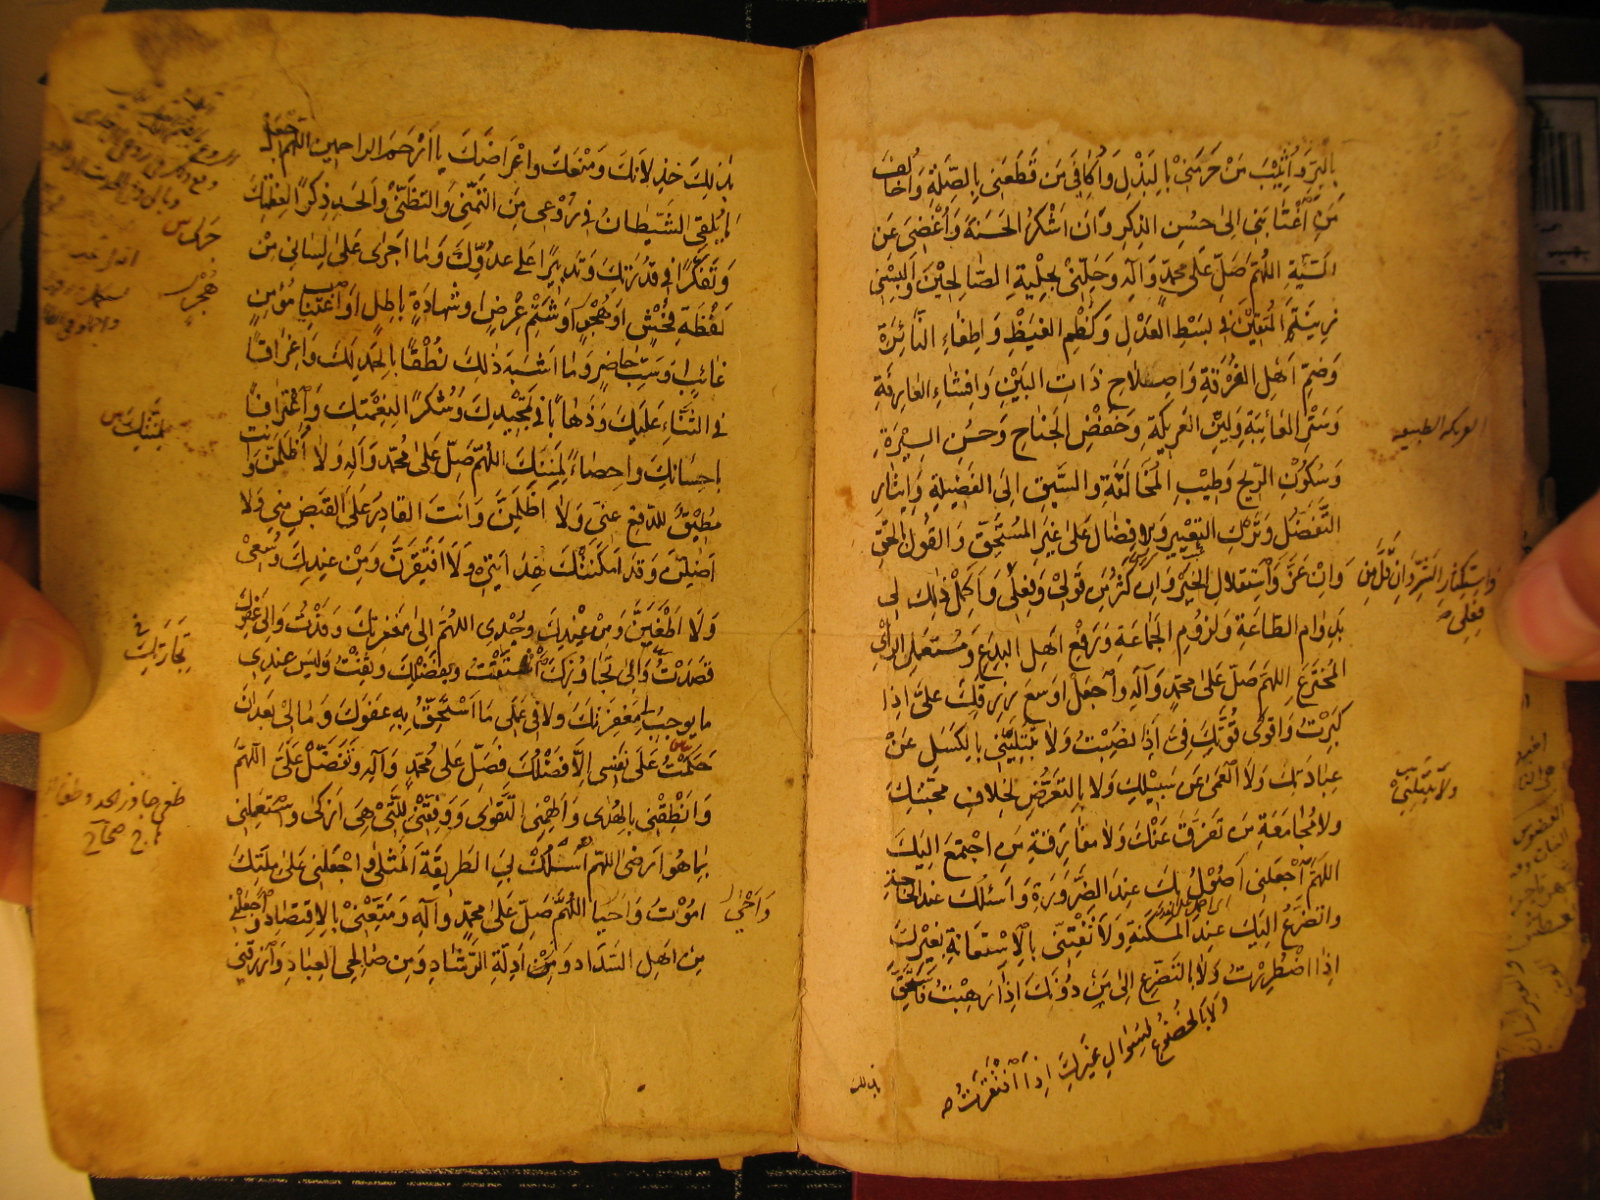 بِالْبِرِّ وَاُثِيْبَ مَنْ حَرَمَنِيْ بِالْبَذْلِ وَاُكَافِيَ مَنْ قَطَعَنِي بِالصِّلَةِ وَاُخَالِفَ
مَنِ اغْتَابَنِي اِلىٰ حُسْنِ الذِكْرِ وَاَنْ اَشْكُرَ الْحَسَنَةَ وَاُغْضِىَ عَنِ
السَّيِّئَةِ اللّٰهُمَّ صَلِّ عَلىٰ مُحَمَّدٍ وَآلِهِ وَحَلِّنِيْ بِحِلْيَةِ الصَّالِحِيْنَ وَاَلْبِسْنِي
زِيْنَةَ الْمُتَّقِيْنَ فِي بَسْطِ الْعَدْلِ وَكَظْمِ الْغَيْظِ وَاِطْفَاءِ النَّائِرَةِ
وَضَمِّ اَهْلِ الْفُرْقَةِ وَاِصْلَاحِ ذَاتِ الْبَيْنِ وَاِفْشَاءِ الْعَارِفَةِ
وَسَتْرِ الْعَائِبَةِ وَلِيْنِ الْعَرِيْكَةِ وَخَفْضِ الْجَنَاحِ وَحُسْنِ السِّيْرَةِ
العريكة الطبيعة
وَسُكُوْنِ الرِّيْحِ وَطِيْبِ الْمُخَالَقَةِ وَالسَّبْقِ اِلَى الْفَضِيْلَةِ وَاِيْثَارِ
التَّفَضُّلِ وَتَرْكِ التَّعْيِيْرِ وَالْاِفْضَالِ عَلىٰ غَيْرِ الْمُسْتَحِقِّ وَالْقَوْلِ بِالْحَقِّ
وَاِنْ عَزَّ وَاسْتِقْلَالِ الْخَيْرِ وَاِنْ كَثُرَ مِنْ قَوْلِي وَفِعْلِي وَاَكْمِلْ ذٰلِكَ لِي
وَاسْتِكْثَارِ الشَّرِّ وَاِنْ قَلَّ مِنْ
فِعْلِي صح
بِدَوَامِ الطَّاعَةِ وَلُزُومِ الْجَمَاعَةِ وَرَفْعِ اَهْلِ الْبِدَعِ وَمُسْتَعْمِلِ الرَّاْيِ
الْمُخْتَرَعِ اللّٰهُمَّ صَلِّ عَلىٰ مُحَمَّدٍ وَآلِهِ وَاجْعَلْ اَوْسَعَ رِزْقِكَ عَلَيَّ اِذَا
كَبِرْتُ وَاَقْوىٰ قُوَّتِكَ فِيَّ اِذَا نَصِبْتُ وَلَا تَبْتَلِيَنِّي بِالْكَسَلِ عَنْ
عِبَادَتِكَ وَلَا الْعَمىٰ عَنْ سَبِيْلِكَ وَلَا بِالتَّعَرُّضِ لِخِلَافِ مَحَبَّتِكَ
وَلَا تَبْتَلِيَنِّيْ
وَلَا مُجَامَعَةِ مَنْ تَفَرَّقَ عَنْكَ وَلَا مُفَارَقَةِ مَنِ اجْتَمَعَ اِلَيْكَ
اَللّٰهُمَّ اجْعَلْنِي اَصُوْلُ بِكَ عِنْدَ الضَّرُوْرَةِ وَاَسْئَلُكَ عِنْدَ الْحَاجَةِ
وَاَتَضَرَّعُ اِلَيْكَ عِنْدَ الْمَسْكَنَةِ وَلَا تَفْتِنِّي بِالْاِسْتِعَانَةِ بِغَيْرِكَ
اِذَا اضْطُرِرْتُ وَلَا بِالتَّضَرُّعِ اِلىٰ مَنْ دُوْنَكَ اِذَا رَهِبْتُ فَاَسْتَحِقَّ
وَلَا بِالْخُضُوْعِ لِسُؤَالِ غَيْرِكَ اِذَا افْتَقَرْتُ صح
بذلك
بِذٰلِكَ خِذْلَانَكَ وَمَنْعَكَ وَاِعْرَاضَكَ يَا اَرْحَمَ الرَاحِمِيْنَ اللّٰهُمَّ اجْعَلْ
مَا يُلْقِي الشَّيْطَانُ فِي رَوْعِي مِنَ التَّمَنِّي وَالتَّظَنِّيْ وَالْحَسَدِ ذِكْرًا لِعَظَمَتِكَ
وَتَفَكُّرًا فِي قُدْرَتِكَ وَتَدْبِيْرًا عَلىٰ عَدُوِّكَ وَمَا اَجْرىٰ عَلىٰ لِسَانِي مِنْ
لَفْظَةِ فُحْشٍ اَوْ هُجْرٍ اَوْ شَتْمِ عِرْضٍ اَوْ شَهَادَةِ بَاطِلٍ اَوِ اغْتِيَابِ مُؤْمِنٍ
هُجْرٍ
غَائِبٍ اَوْ سَبِّ حَاضِرٍ وَمَا اَشْبَهَ ذٰلِكَ نُطْقًا بِالْحَمْدِ لَكَ وَاِغْرَاقًا
فِي الثَّنَاءِ عَلَيْكَ وَذَهَاباً فِي تَمْجِيْدِكَ وَشُكْرًا لِنِعْمَتِكَ وَاعْتِرَافًا
بِاِحْسَانِكَ وَاِحْصَاءً لِمِنَنِكَ اللّٰهُمَّ صَلِّ عَلىٰ مُحَمَّدٍ وَآلِهِ وَلَا اُظْلَمَنَّ وَاَنْتَ
مُطِيْقٌ لِلدَّفْعِ عَنِّي وَلَا اَظْلِمَنَّ وَاَنْتَ الْقَادِرُ عَلَى الْقَبْضِ مِنِّي وَلَا
اَضِلَّنَّ وَقَدْ اَمْكَنَتْكَ هِدَايَتِيْ وَلَا اَفْتَقِرَنَّ وَمِنْ عِنْدِكَ وُسْعِيْ
وَلَا اَطْغَيَنَّ وَمِنْ عِنْدِكَ وُجْدِي اللّٰهُمَّ اِلىٰ مَغْفِرَتِكَ وَفَدْتُ وَاِلىٰ عَفْوِكَ
قَصَدْتُ وَاِلىٰ تَجَاوُزِكَ اشْتَقْتُ وَبِفَضْلِكَ وَثِقْتُ وَلَيْسَ عِنْدِي
مَا يُوجِبُ لِي مَغْفِرَتَكَ وَلَا فِي عَمَلِي مَا اَسْتَحِقُّ بِهِ عَفْوَكَ وَمَا لِيْ بَعْدَ اَنْ
حَكَمْتُ عَلىٰ نَفْسِي اِلَّا فَضْلُكَ فَصَلِّ عَلىٰ مُحَمَّدٍ وَآلِهِ وَتَفَضَّلْ عَلَيَّ اَللّٰهُمَّ
وَاَنْطِقْنِي بِالْهُدىٰ وَاَلْهِمْنِي التَّقْوىٰ وَوَفِّقْنِيْ لِلَّتِيْ هِيَ اَزْكىٰ وَاسْتَعْمِلْنِي
بِمَا هُوَ اَرْضىٰ اللّٰهُمَّ اسْلُكْ بِيَ الطَّرِيْقَةَ الْمُثْلىٰ وَاجْعَلْنِي عَلىٰ مِلَّتِكَ
اَمُوْتُ وَاَحْيَا اللّٰهُمَّ صَلِّ عَلىٰ مُحَمَّدٍ وَآلِهِ وَمَتِّعْنِيْ بِالْاِقْتِصَادِ وَاجْعَلْنِي
مِنْ اَهْلِ السَّدَادِ وَمِنْ اَدِلَّةِ الرَّشَادِ وَمِنْ صَالِحِي الْعِبَادِ وَارْزُقْنِي